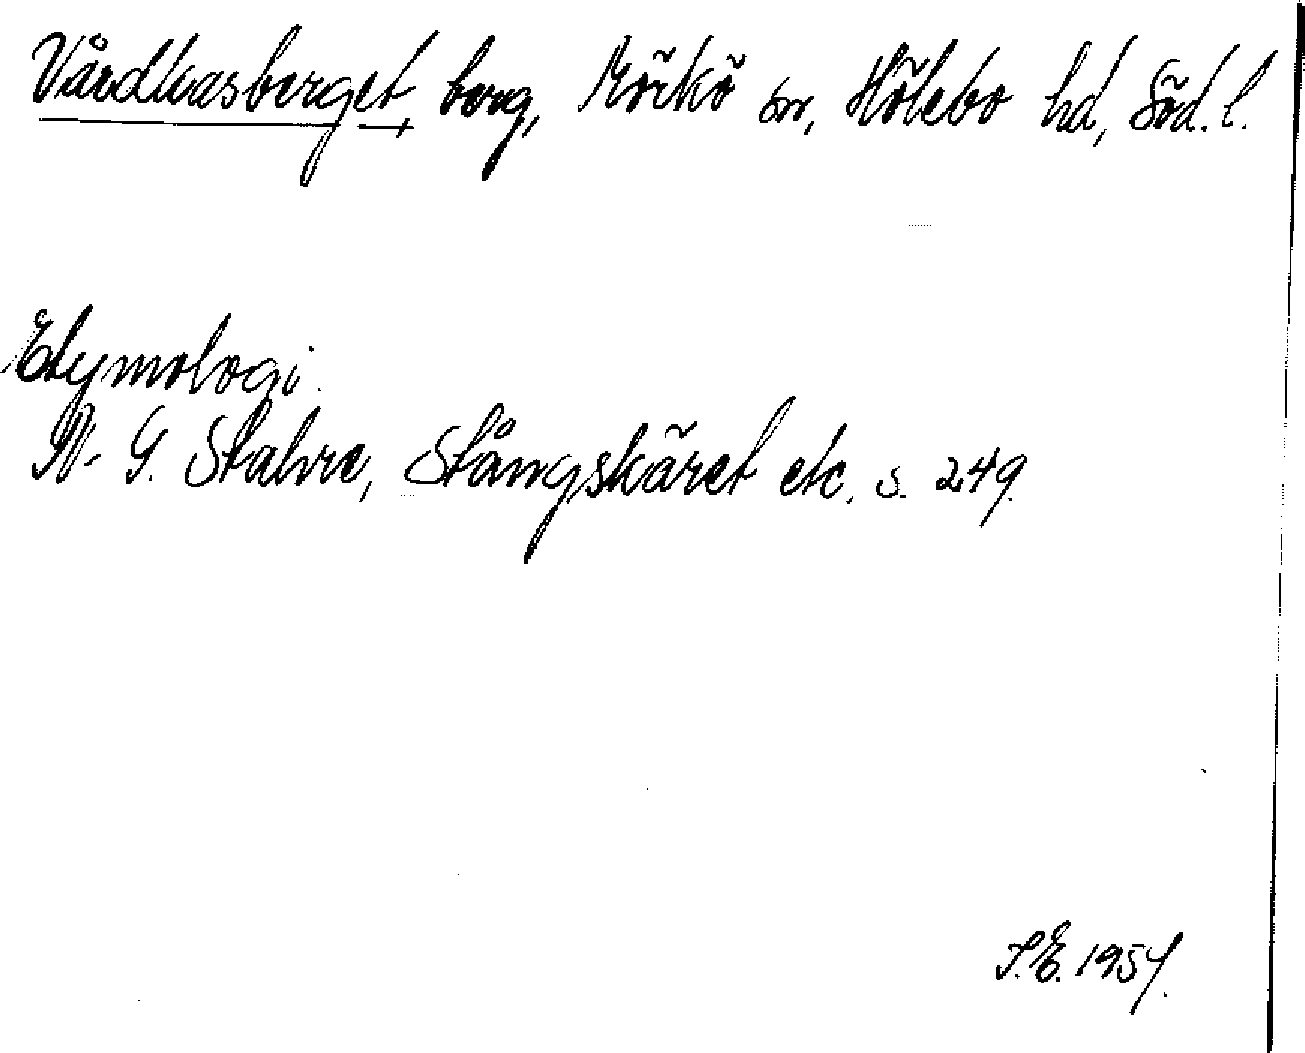 Vårdkasberget, berg, Mörkö sn, Hölebo hd, Söd. l.
Etymologi.
N. G. Stahre, Stångskäret etc. s. 249.
S.E. 1954.